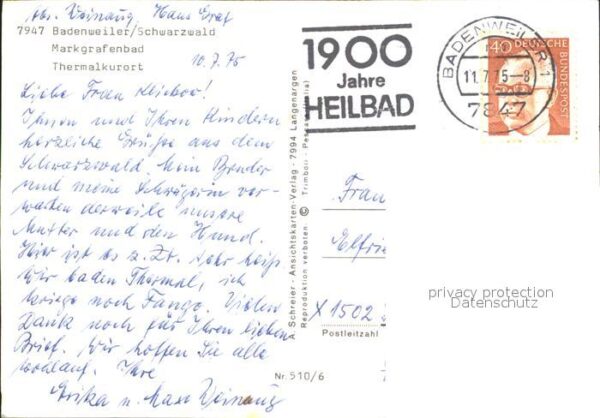 Abs. Weinaug, Haus Graf
7847 Badenweiler/Schwarzwald
Markgrafenbad
Thermalkurort
10.7.75
Liebe Frau
Ihnen und Ihren Kindern
herzliche Grüße aus dem
Schwarzwald. Mein Bruder
und meine Schwägerin ver-
warten derweile unsere
Mutter und den Hund.
Hier ist es z. Zt. sehr heiß
Wir baden Thermal, ich
kriege noch Fango. Vielen
Dank noch für Ihren lieben
Brief. Wir hoffen Sie alle
wohlauf. Ihre
Erika u. Max Weinaug
1900
Jahre
HEILBAD
BADENWEILER 1
11.7.75-8
7847
40 DEUTSCHE
BUNDESPOST
A. Schreier - Ansichtskarten-Verlag - 7994 Langenargen
Reproduction verboten © Trimboli -
Frau
Elfrie
X 1502
Postleitzahl
Nr. 510/6
privacy protection
Datenschutz